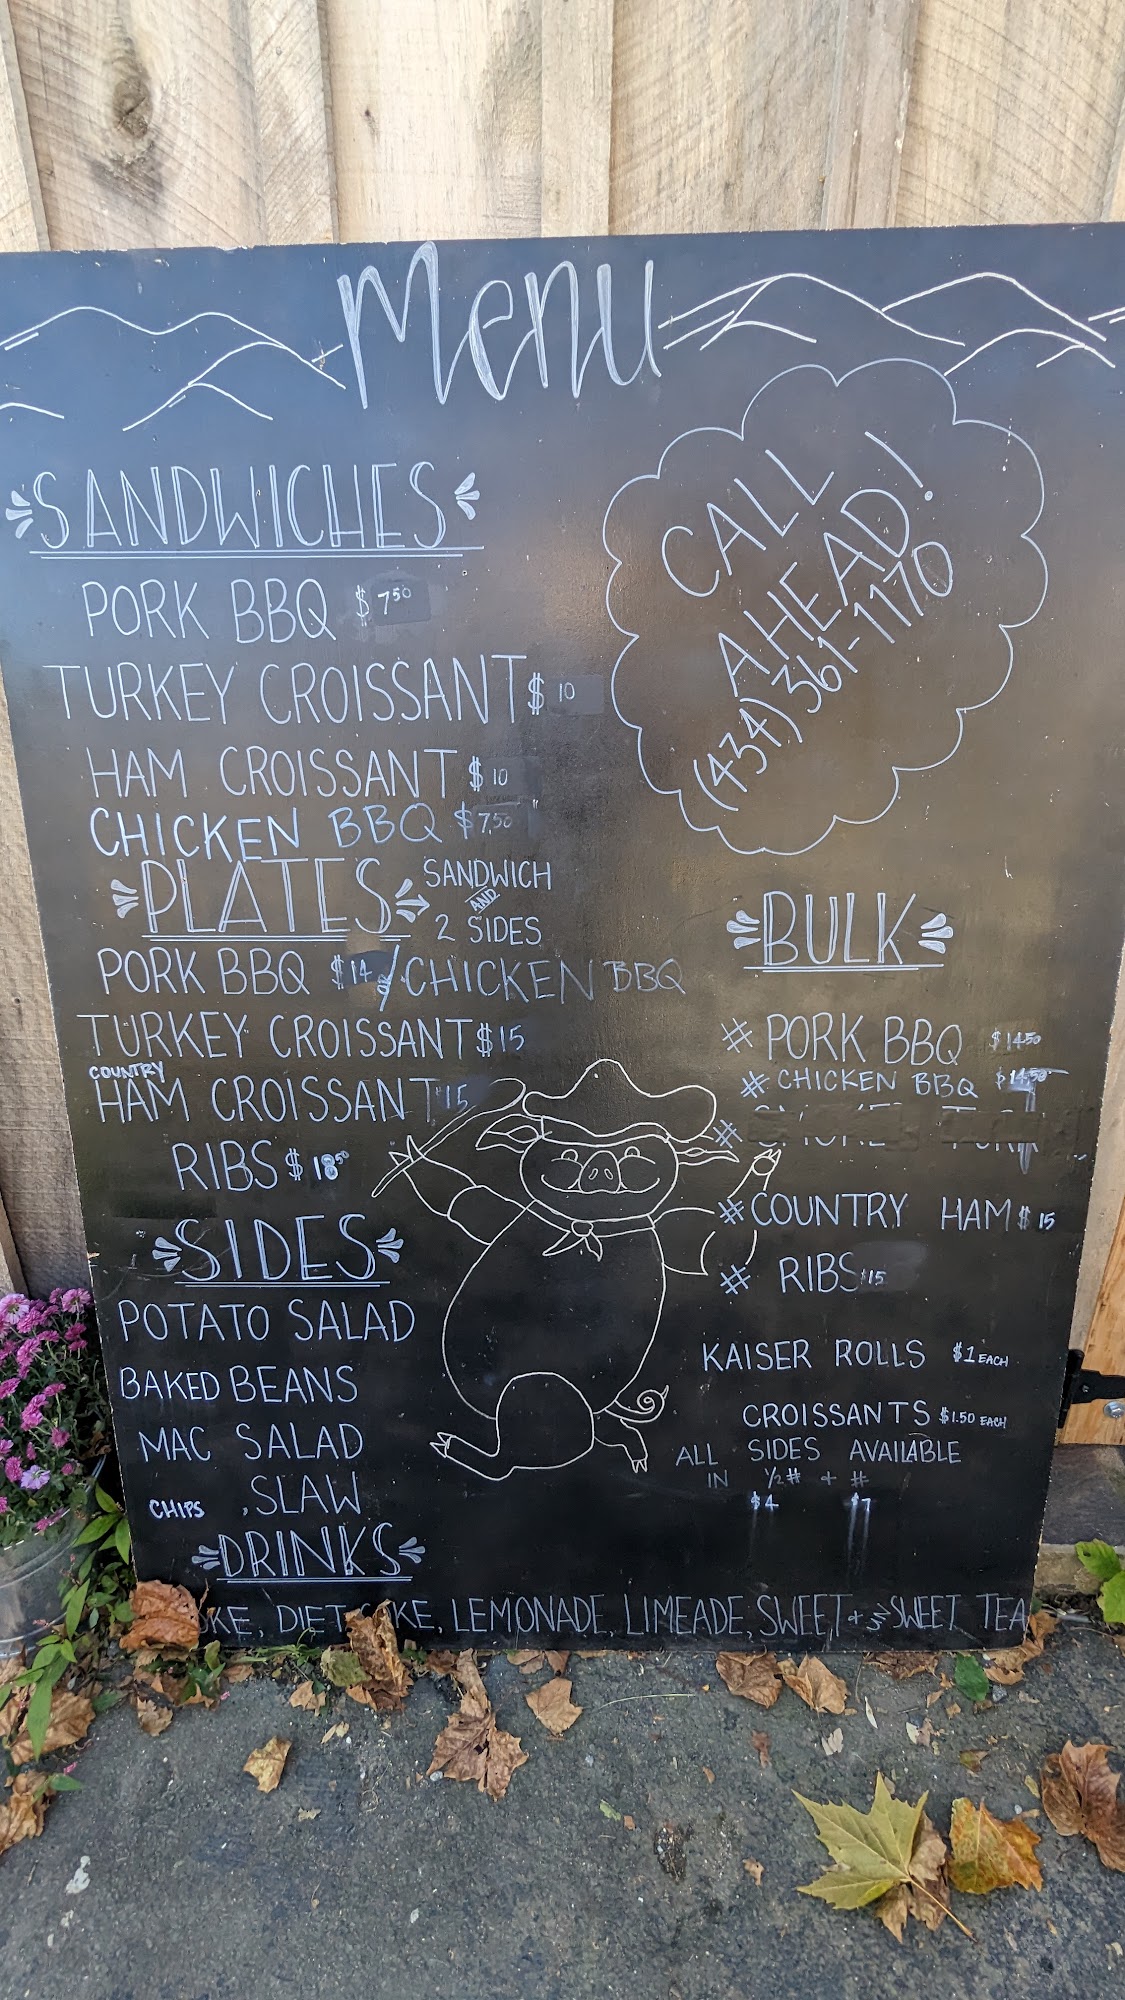 Menu
SANDWICHES
PORK BBQ $7.50
TURKEY CROISSANT $10
HAM CROISSANT $10
CHICKEN BBQ $7.50
CALL
AHEAD!
(434) 361-1170
PLATES SANDWICH
AND
2 SIDES
PORK BBQ $14 OR / CHICKEN BBQ
TURKEY CROISSANT $15
COUNTRY
HAM CROISSANT 15
RIBS $18.50
SIDES
POTATO SALAD
BAKED BEANS
MAC SALAD
CHIPS , SLAW
BULK
# PORK BBQ $14.50
# CHICKEN BBQ $14.50
#
# COUNTRY HAM $15
# RIBS $15
KAISER ROLLS $1 EACH
CROISSANTS $1.50 EACH
ALL SIDES AVAILABLE
IN 1/2 # + #
$4 $7
DRINKS
DIET, LEMONADE, LIMEADE, SWEET + UN SWEET TEA